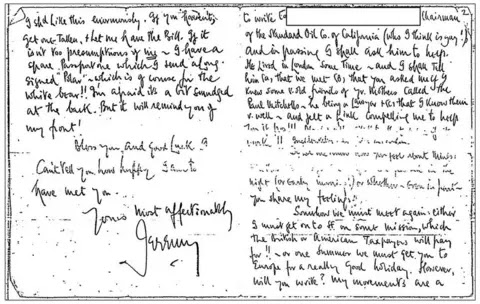 I shd like this enormously. If you haven't
get one taken, & let me have the bill. If it
isn't too presumptuous of me - I have a
spare passport one which I send along -
signed 'Polar' - which is of course for the
white bear!! I'm afraid it's a bit smudged
at the back. But it will remind you of
my front!
Bless you, and Good Luck. I
Can't tell you how happy I am to
have met you.
Yours most affectionately
Jeremy
2
to write C Chairman
of the Standard Oil Co. of California (who I think is gay!)
and in passing I shall ask him to help.
He lived in London some time - and I shall tell
him that we met, that you asked me if I
knew some v. old friends of yr. Mother's called the
Paul Mitchells - he being a lawyer & that I knew them
v. well - and felt a link compelling me to help
you feel about things
night (or early morning) or whether - even in part -
you share my feelings.
Somehow we must meet again: either
I must get on to on some mission, which
the British or American Taxpayers will pay
for!! - or one Summer we must get you to
Europe for a really good holiday. However,
will you write? My movements are a